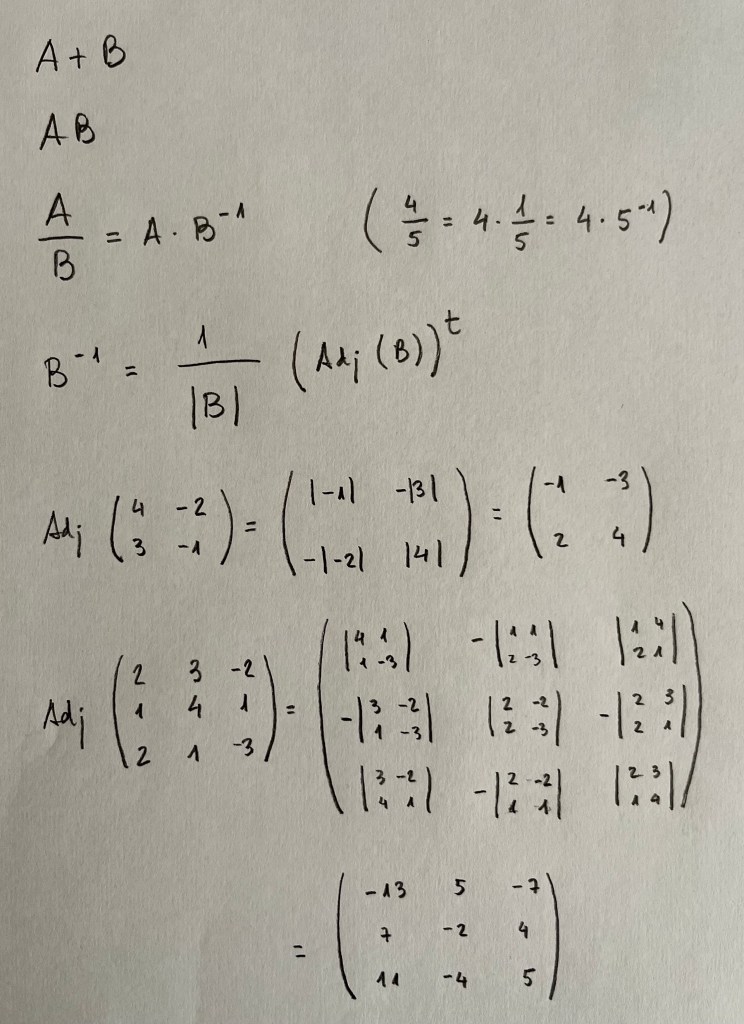 A + B
AB
A/B = A · B⁻¹ (4/5 = 4 · 1/5 = 4 · 5⁻¹)
B⁻¹ = 1/|B| (Adj (B))ᵗ
Adj (4 -2; 3 -1) = (|-1| -|3|; -|-2| |4|) = (-1 -3; 2 4)
Adj (2 3 -2; 1 4 1; 2 1 -3) = (|4 1; 1 -3| -|1 1; 2 -3| |1 4; 2 1|; -|3 -2; 1 -3| |2 -2; 2 -3| -|2 3; 2 1|; |3 -2; 4 1| -|2 -2; 1 1| |2 3; 1 4|)
= (-13 5 -7; 7 -2 4; 11 -4 5)